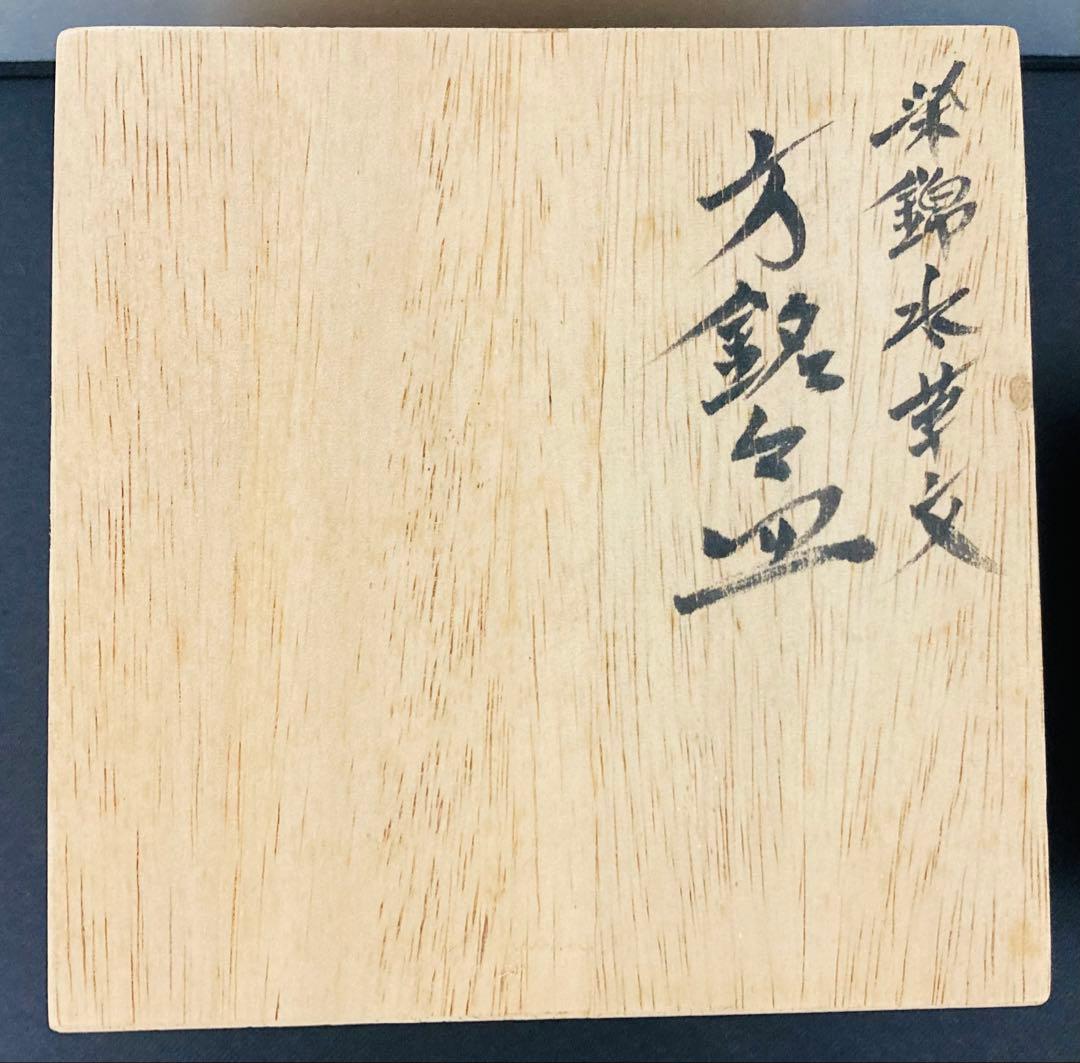 染錦水草文
方銘々皿